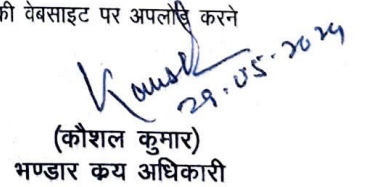 की वेबसाइट पर अपलोड करने
Kaushal
29.05.2024
(कौशल कुमार)
भण्डार कय अधिकारी